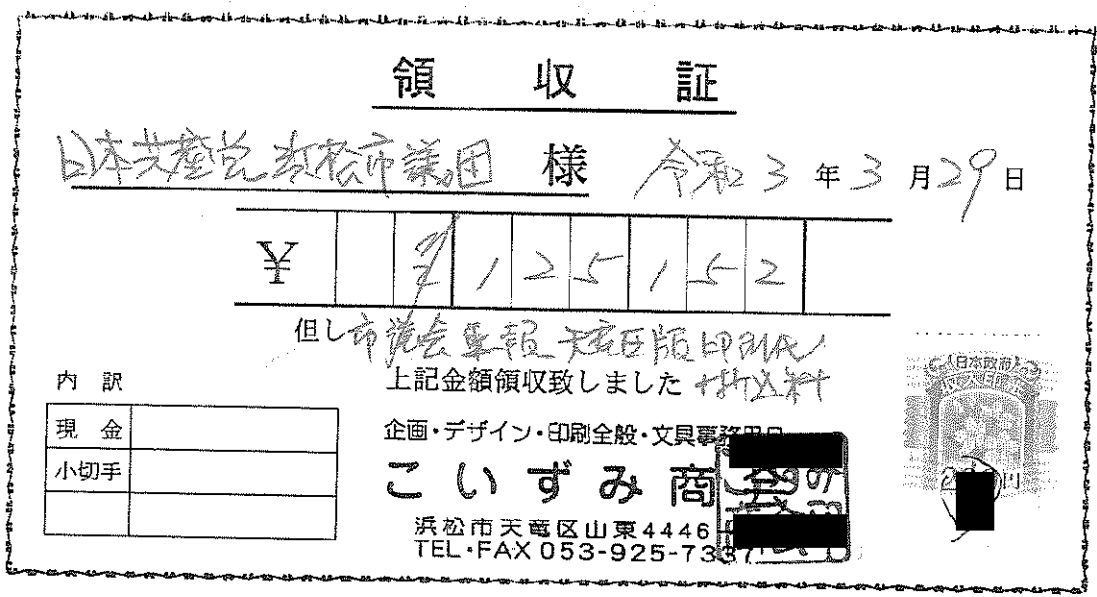 領収証
日本共産党浜松市議団 様 令和3年3月29日
¥ 125152
但し 市議会夕報 天竜区版印刷代
上記金額領収致しました +折込料
内訳
現金
小切手
企画・デザイン・印刷全般・文具事務用品
こいずみ商会
浜松市天竜区山東4446
TEL・FAX 053-925-7337
日本政府
円